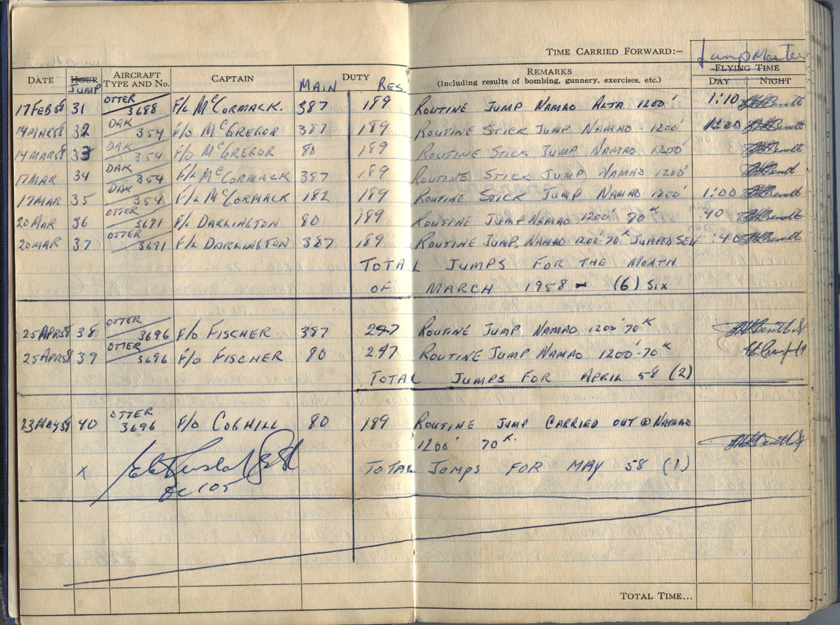 TIME CARRIED FORWARD:—
Jump Master
DATE HOUR JUMP AIRCRAFT TYPE AND No. CAPTAIN MAIN DUTY RES REMARKS (Including results of bombing, gunnery, exercises, etc.) FLYING TIME DAY NIGHT
17 FEB 58 31 OTTER 3688 F/L McCORMACK. 387 189 ROUTINE JUMP NAMAO ALTA 1200' 1:10
14 MAR 58 32 DAK 354 F/O McGREGOR 387 189 ROUTINE STICK JUMP NAMAO 1200'
14 MAR 58 33 DAK 354 F/O McGREGOR 80 189 ROUTINE STICK JUMP NAMAO 1200'
17 MAR 34 DAK 354 F/L McCORMACK 387 189 ROUTINE STICK JUMP NAMAO 1200'
17 MAR 35 DAK 354 F/L McCORMACK 182 189 ROUTINE STICK JUMP NAMAO 1200' 1:00
20 MAR 36 OTTER 3691 F/L DARLINGTON 80 189 ROUTINE JUMP NAMAO 1200' 70K :40
20 MAR 37 OTTER 3691 F/L DARLINGTON 387 189 ROUTINE JUMP, NAMAO 1200' 70K JUMPED SELF :40
TOTAL JUMPS FOR THE MONTH
OF MARCH 1958 - (6) SIX
25 APR 58 38 OTTER 3696 F/O FISCHER 387 247 ROUTINE JUMP NAMAO 1200' 70K
25 APR 58 39 OTTER 3696 F/O FISCHER 80 247 ROUTINE JUMP NAMAO 1200' 70K
TOTAL JUMPS FOR APRIL 58 (2)
23 MAY 58 40 OTTER 3696 F/O COGHILL 80 189 ROUTINE JUMP CARRIED OUT @ NAMAO
1200' 70K.
x TOTAL JUMPS FOR MAY 58 (1)
TOTAL TIME...